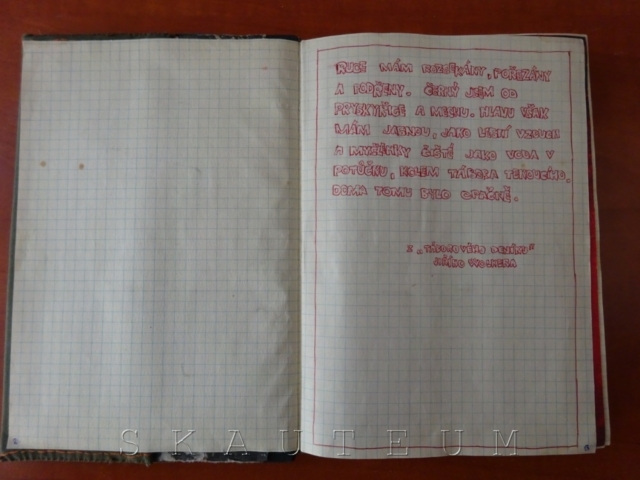 RUCE MÁM ROZDRÁNY, POŘEZÁNY
A PODŘENY. ČERNÝ JSEM OD
PRYSKYŘICE A MECHU. HLAVU VŠAK
MÁM JASNOU, JAKO LESNÍ VZDUCH
A MYŠLENKY ČISTÉ JAKO VODA V
POTŮČKU, KOLEM TÁBORA TEKOUCÍHO.
DOMA TOMU BYLO OPAČNĚ.
Z „TÁBOROVÉHO DENÍKU"
JIŘÍHO WOLKERA
SKAUTEUM